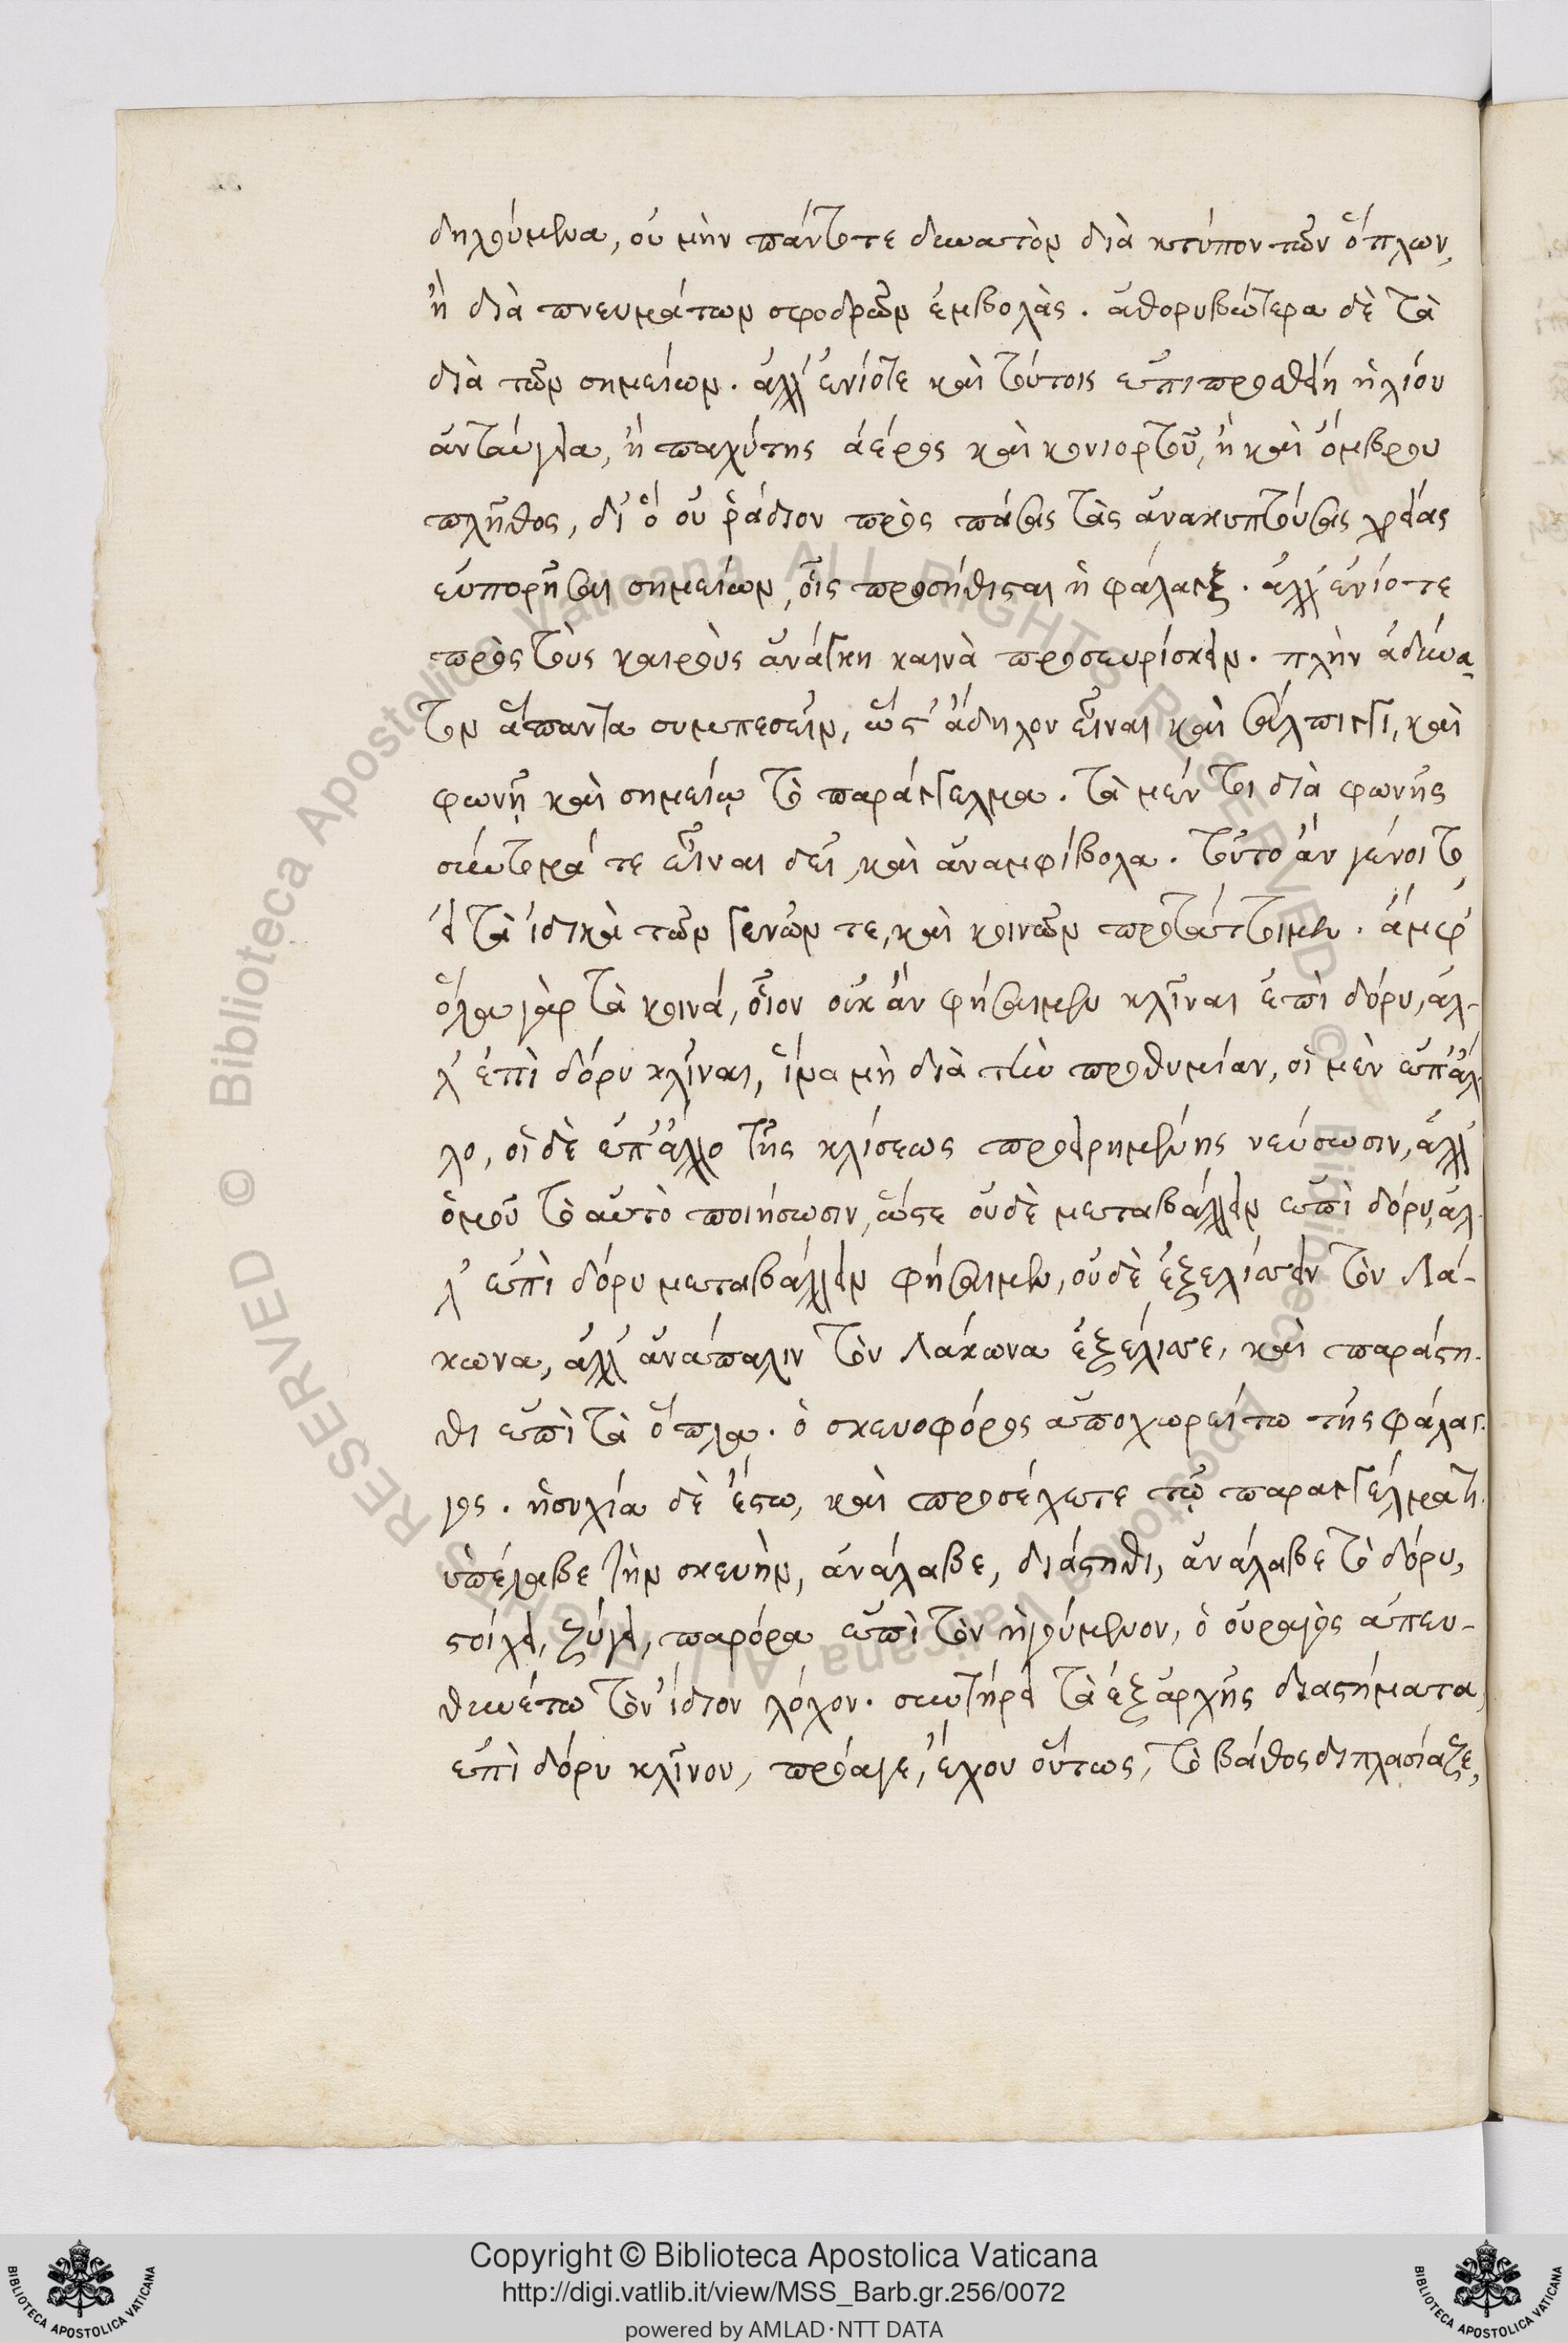 δηλούμενα, οὐ μὴν πάντοτε δυνατὸν διὰ κτύπον τῶν ὅπλων,
ἢ διὰ πνευμάτων σφοδρῶν ἐμβολὰς. ἀθορυβώτερα δὲ τὰ
διὰ τῶν σημείων. ἀλλ' ἐνίοτε καὶ τούτοις ἐπιπροσθεῖ ἡλίου
ἀνταύγεια, ἢ παχύτης ἀέρος καὶ κονιορτοῦ, ἢ καὶ ὄμβρου
πλῆθος, δι' ὃ οὐ ῥάδιον πρὸς πάσας τὰς ἀνακυπτούσας χρείας
εὐπορῆσαι σημείων, οἷς προσήθισται ἡ φάλαγξ. ἀλλ' ἐνίοτε
πρὸς τοὺς καιροὺς ἀνάγκη καινὰ προσευρίσκειν. πλὴν ἀδύνα-
τον ἅπαντα συμπεσεῖν, ὥστ' ἄδηλον εἶναι καὶ σάλπιγγι, καὶ
φωνῇ καὶ σημείῳ τὸ παράγγελμα. τὰ μέν τοι διὰ φωνῆς
σύντομά τε εἶναι δεῖ, καὶ ἀναμφίβολα. τοῦτο ἂν γένοιτο,
εἰ τὰ ἰδικὰ τῶν γενῶν τε, καὶ κοινῶν προτάττοιμεν. ἀμφί
βολα γὰρ τὰ κοινά, οἷον οὐκ ἂν φήσαιμεν κλῖναι ἐπὶ δόρυ, ἀλ-
λ' ἐπὶ δόρυ κλῖναι, ἵνα μὴ διὰ τὴν προθυμίαν, οἱ μὲν ἐπ' ἄλ-
λο, οἱ δὲ ἐπ' ἄλλο τῆς κλίσεως προειρημένης νεύσωσιν, ἀλλ'
ὁμοῦ τὸ αὐτὸ ποιήσωσιν, ὥστε οὐδὲ μεταβάλλειν ἐπὶ δόρυ, ἀλ-
λ' ἐπὶ δόρυ μεταβάλλειν φήσαιμεν, οὐδὲ ἐξελίσσειν τὸν Λά-
κωνα, ἀλλ' ἀνάπαλιν τὸν Λάκωνα ἐξέλισσε, καὶ παράστη-
θι ἐπὶ τὰ ὅπλα. ὁ σκευοφόρος ἀποχωρείτω τῆς φάλαγ-
γος. ἡσυχία δὲ ἔστω, καὶ προσέχετε τῷ παραγγέλματι.
ὑπέλαβε τὴν σκευὴν, ἀνάλαβε, διάστηθι, ἀνάλαβε τὸ δόρυ,
στοίχει, ζύγει, παρόρα ἐπὶ τὸν ἡγούμενον, ὁ οὐραγὸς ἀπευ-
θυνέτω τὸν ἴδιον λόχον. συντήρει τὰ ἐξ ἀρχῆς διαστήματα,
ἐπὶ δόρυ κλῖνον, πρόαγε, ἔχου οὕτως, τὸ βάθος διπλασίαζε,
Copyright © Biblioteca Apostolica Vaticana
http://digi.vatlib.it/view/MSS_Barb.gr.256/0072
powered by AMLAD·NTT DATA